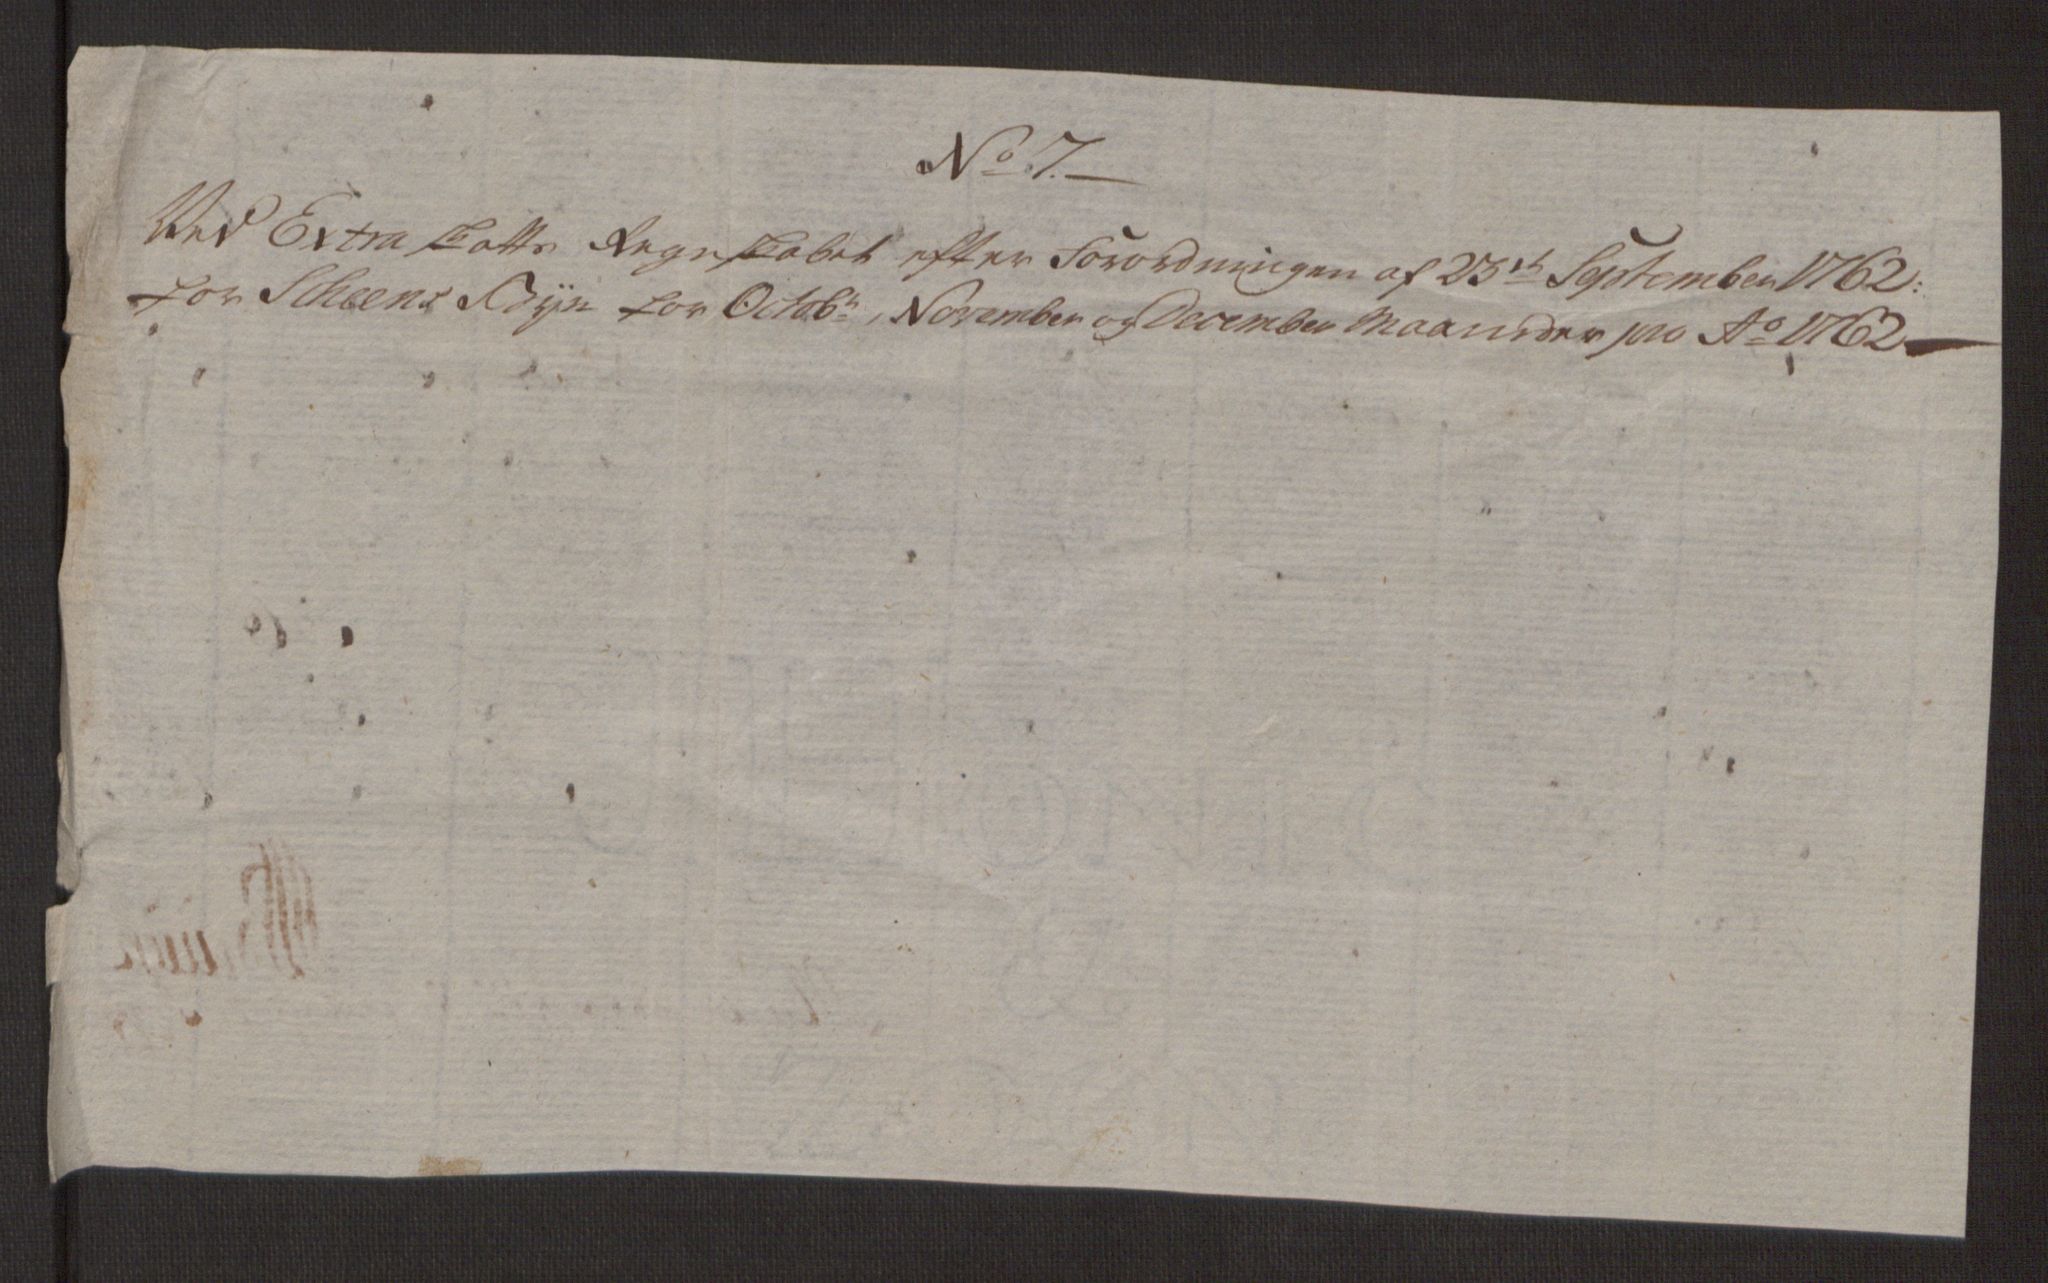 No 7.
Ved Extra Skatts Regnskabet efter Forordningen af 23de September 1762:
for Scheens Bÿe for Octobr, November og December Maaneder pro Ao 1762